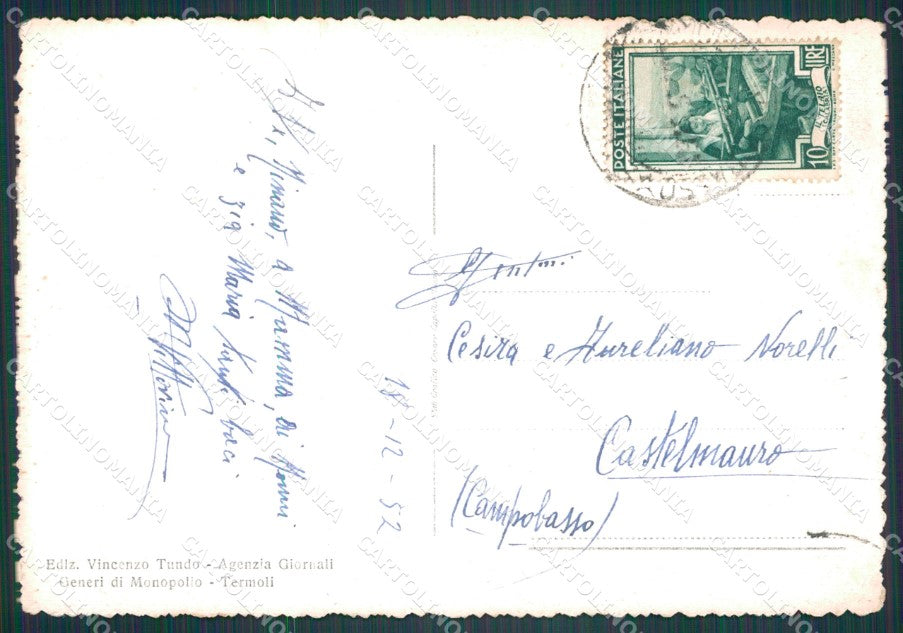 POSTE ITALIANE
10
LIRE
Cesira e Aureliano Norelli
Castelmauro
(Campobasso)
a Mamma, ai Nonni
e zia Maria tanti baci
18-12-52
Ediz. Vincenzo Tundo - Agenzia Giornali
Generi di Monopolio - Termoli
CARTOLINOMANIA